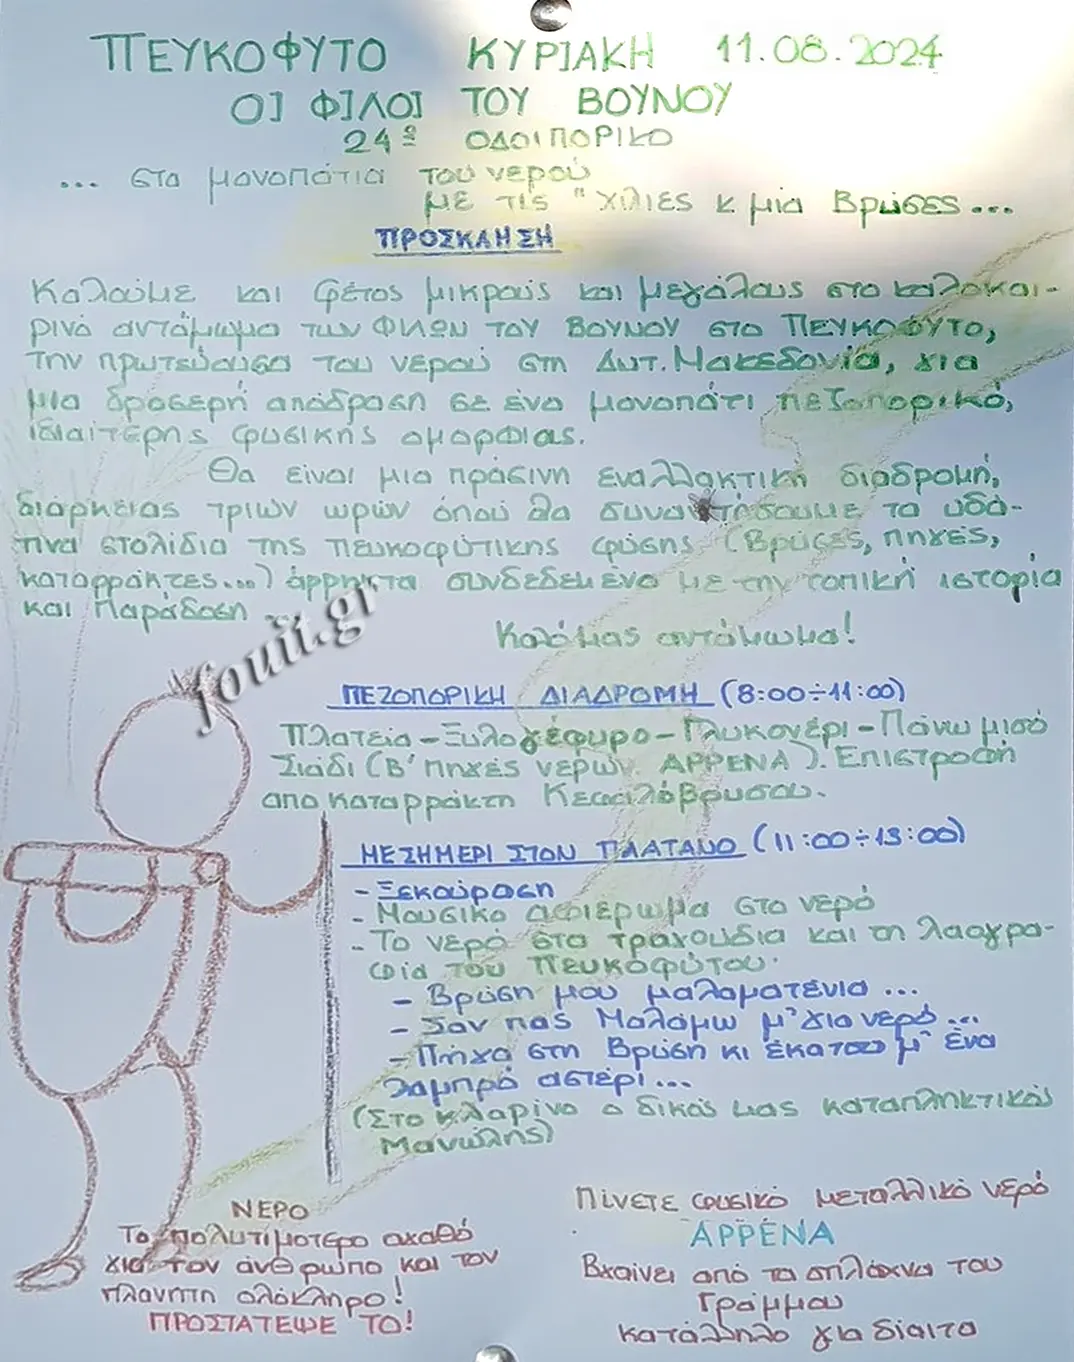 ΠΕΥΚΟΦΥΤΟ ΚΥΡΙΑΚΗ 11.08.2024
ΟΙ ΦΙΛΟΙ ΤΟΥ ΒΟΥΝΟΥ
24º ΟΔΟΙΠΟΡΙΚΟ
... στα μονοπάτια του νερού
με τις "χίλιες κ μία Βρύσες...
ΠΡΟΣΚΛΗΣΗ
Καλούμε και φέτος μικρούς και μεγάλους στο καλοκαι-
ρινό αντάμωμα των ΦΙΛΩΝ ΤΟΥ ΒΟΥΝΟΥ στο ΠΕΥΚΟΦΥΤΟ,
την πρωτεύουσα του νερού στη Δυτ. Μακεδονία, για
μια δροσερή απόδραση σε ένα μονοπάτι πεζοπορικό,
ιδιαίτερης φυσικής ομορφιάς.
Θα είναι μια πράσινη εναλλακτική διαδρομή,
διάρκειας τριών ωρών όπου θα συναντήσουμε τα υδά-
τινα στολίδια της πευκοφύτικης φύσης (Βρύσες, πηγές,
καταρράκτες...) άρρηκτα συνδεδεμένα με την τοπική ιστορία
και Παράδοση
Καλό μας αντάμωμα!
fouit.gr
ΠΕΖΟΠΟΡΙΚΗ ΔΙΑΔΡΟΜΗ (8:00÷11:00)
Πλατεία - Ξυλογέφυρο - Γλυκονέρι - Πάνω μισό
Σιάδι (Β' πηγές νερών ΑΡΡΕΝΑ). Επιστροφή
από καταρράκτη Κεφαλόβρυσου.
ΜΕΣΗΜΕΡΙ ΣΤΟΝ ΠΛΑΤΑΝΟ (11:00÷13:00)
- Ξεκούραση
- Μουσικό αφιέρωμα στο νερό
- Το νερό στα τραγούδια και τη λαογρα-
φία του Πευκοφύτου.
- Βρύση μου μαλαματένια ...
- Σαν πας Μαλάμω μ' για νερό ...
- Πήγα στη Βρύση κι έκατσα μ' ένα
λαμπρό αστέρι ...
(Στο κλαρίνο ο δικός μας καταπληκτικός
Μανώλης)
ΝΕΡΟ
Το πολυτιμότερο αγαθό
για τον άνθρωπο και τον
πλανήτη ολόκληρο!
ΠΡΟΣΤΑΤΕΨΕ ΤΟ!
Πίνετε φυσικό μεταλλικό νερό
ΑΡΡΕΝΑ
Βγαίνει από τα σπλάχνα του
Γράμμου
κατάλληλο για δίαιτα